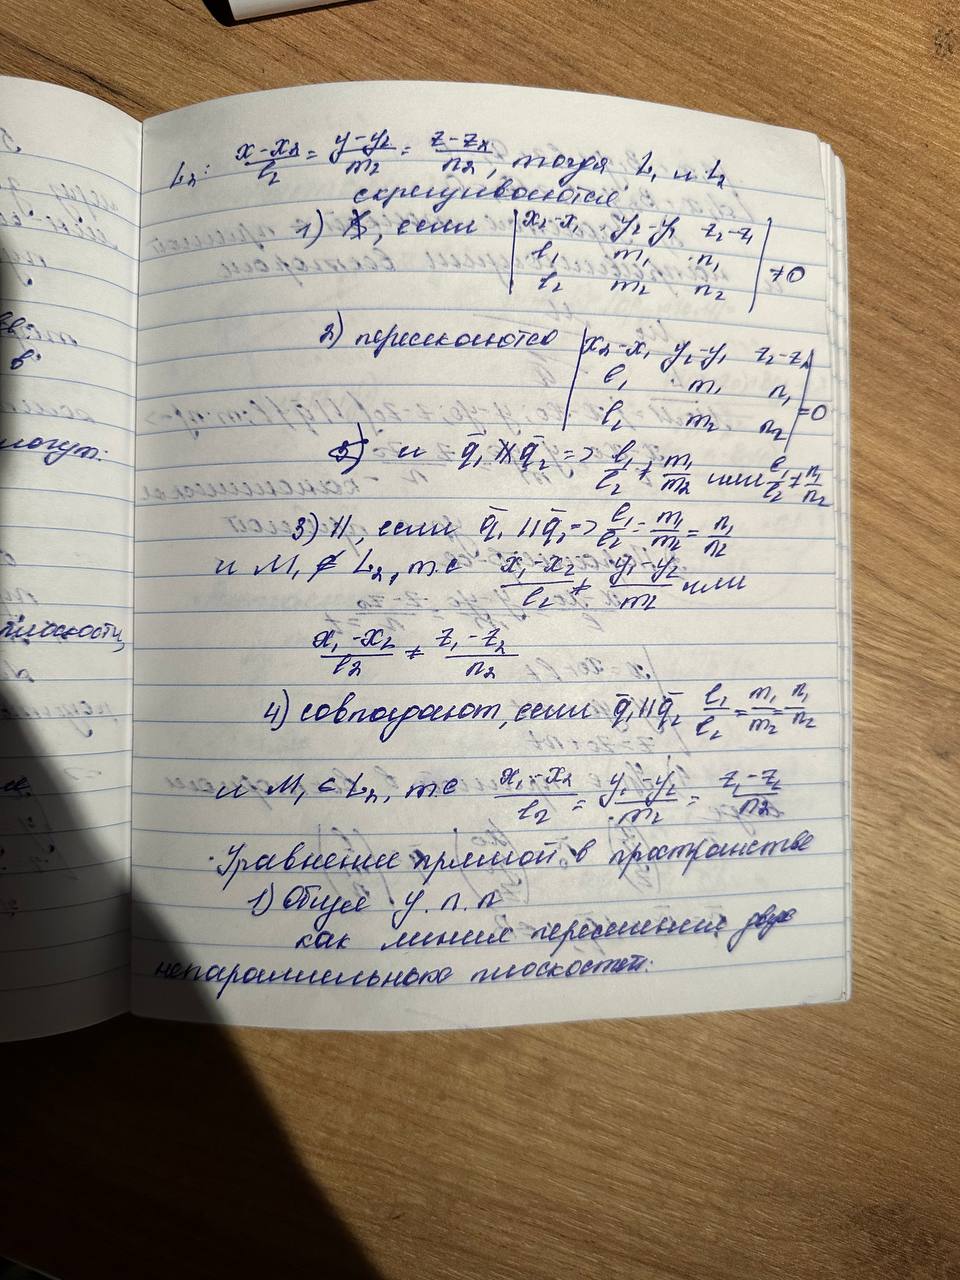 L₂: (x-x₂)/l₂ = (y-y₂)/m₂ = (z-z₂)/n₂, тогда L₁ и L₂
скрещиваются
1) , если | x₂-x₁ y₂-y₁ z₂-z₁ |
| l₁ m₁ n₁ | ≠0
| l₂ m₂ n₂ |
2) пересекаются | x₂-x₁ y₂-y₁ z₂-z₁ |
| l₁ m₁ n₁ | =0
| l₂ m₂ n₂ |
и q̄₁ ∦ q̄₂ => l₁/l₂ ≠ m₁/m₂ или l₁/l₂ ≠ n₁/n₂
3) ||, если q̄₁ || q̄₂ => l₁/l₂ = m₁/m₂ = n₁/n₂
и M₁ ∉ L₂, т.е (x₁-x₂)/l₂ ≠ (y₁-y₂)/m₂ или
(x₁-x₂)/l₂ ≠ (z₁-z₂)/n₂
4) совпадают, если q̄₁ || q̄₂ l₁/l₂ = m₁/m₂ = n₁/n₂
и M₁ ∈ L₂, т.е (x₁-x₂)/l₂ = (y₁-y₂)/m₂ = (z₁-z₂)/n₂
Уравнение прямой в пространстве
1) Общее у.п.п
как линия пересечения двух
непараллельных плоскостей:
в
могут:
плоскости,